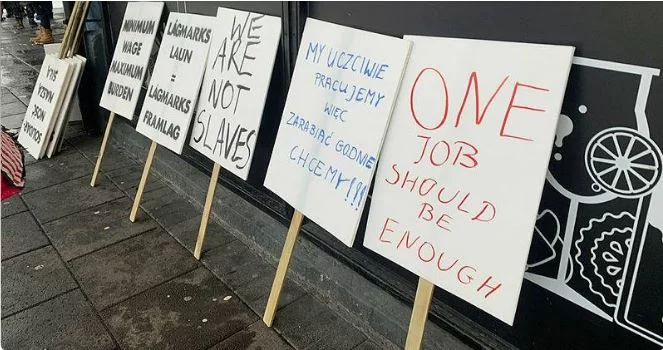 MINIMUM
WAGE
MAXIMUM
BURDEN
LÁGMARKS
LAUN
=
LÁGMARKS
FRAMLAG
WE
ARE
NOT
SLAVES
MY UCZCIWIE
PRACUJEMY
WIĘC
ZARABIAĆ GODNIE
CHCEMY!!!
ONE
JOB
SHOULD
BE
ENOUGH